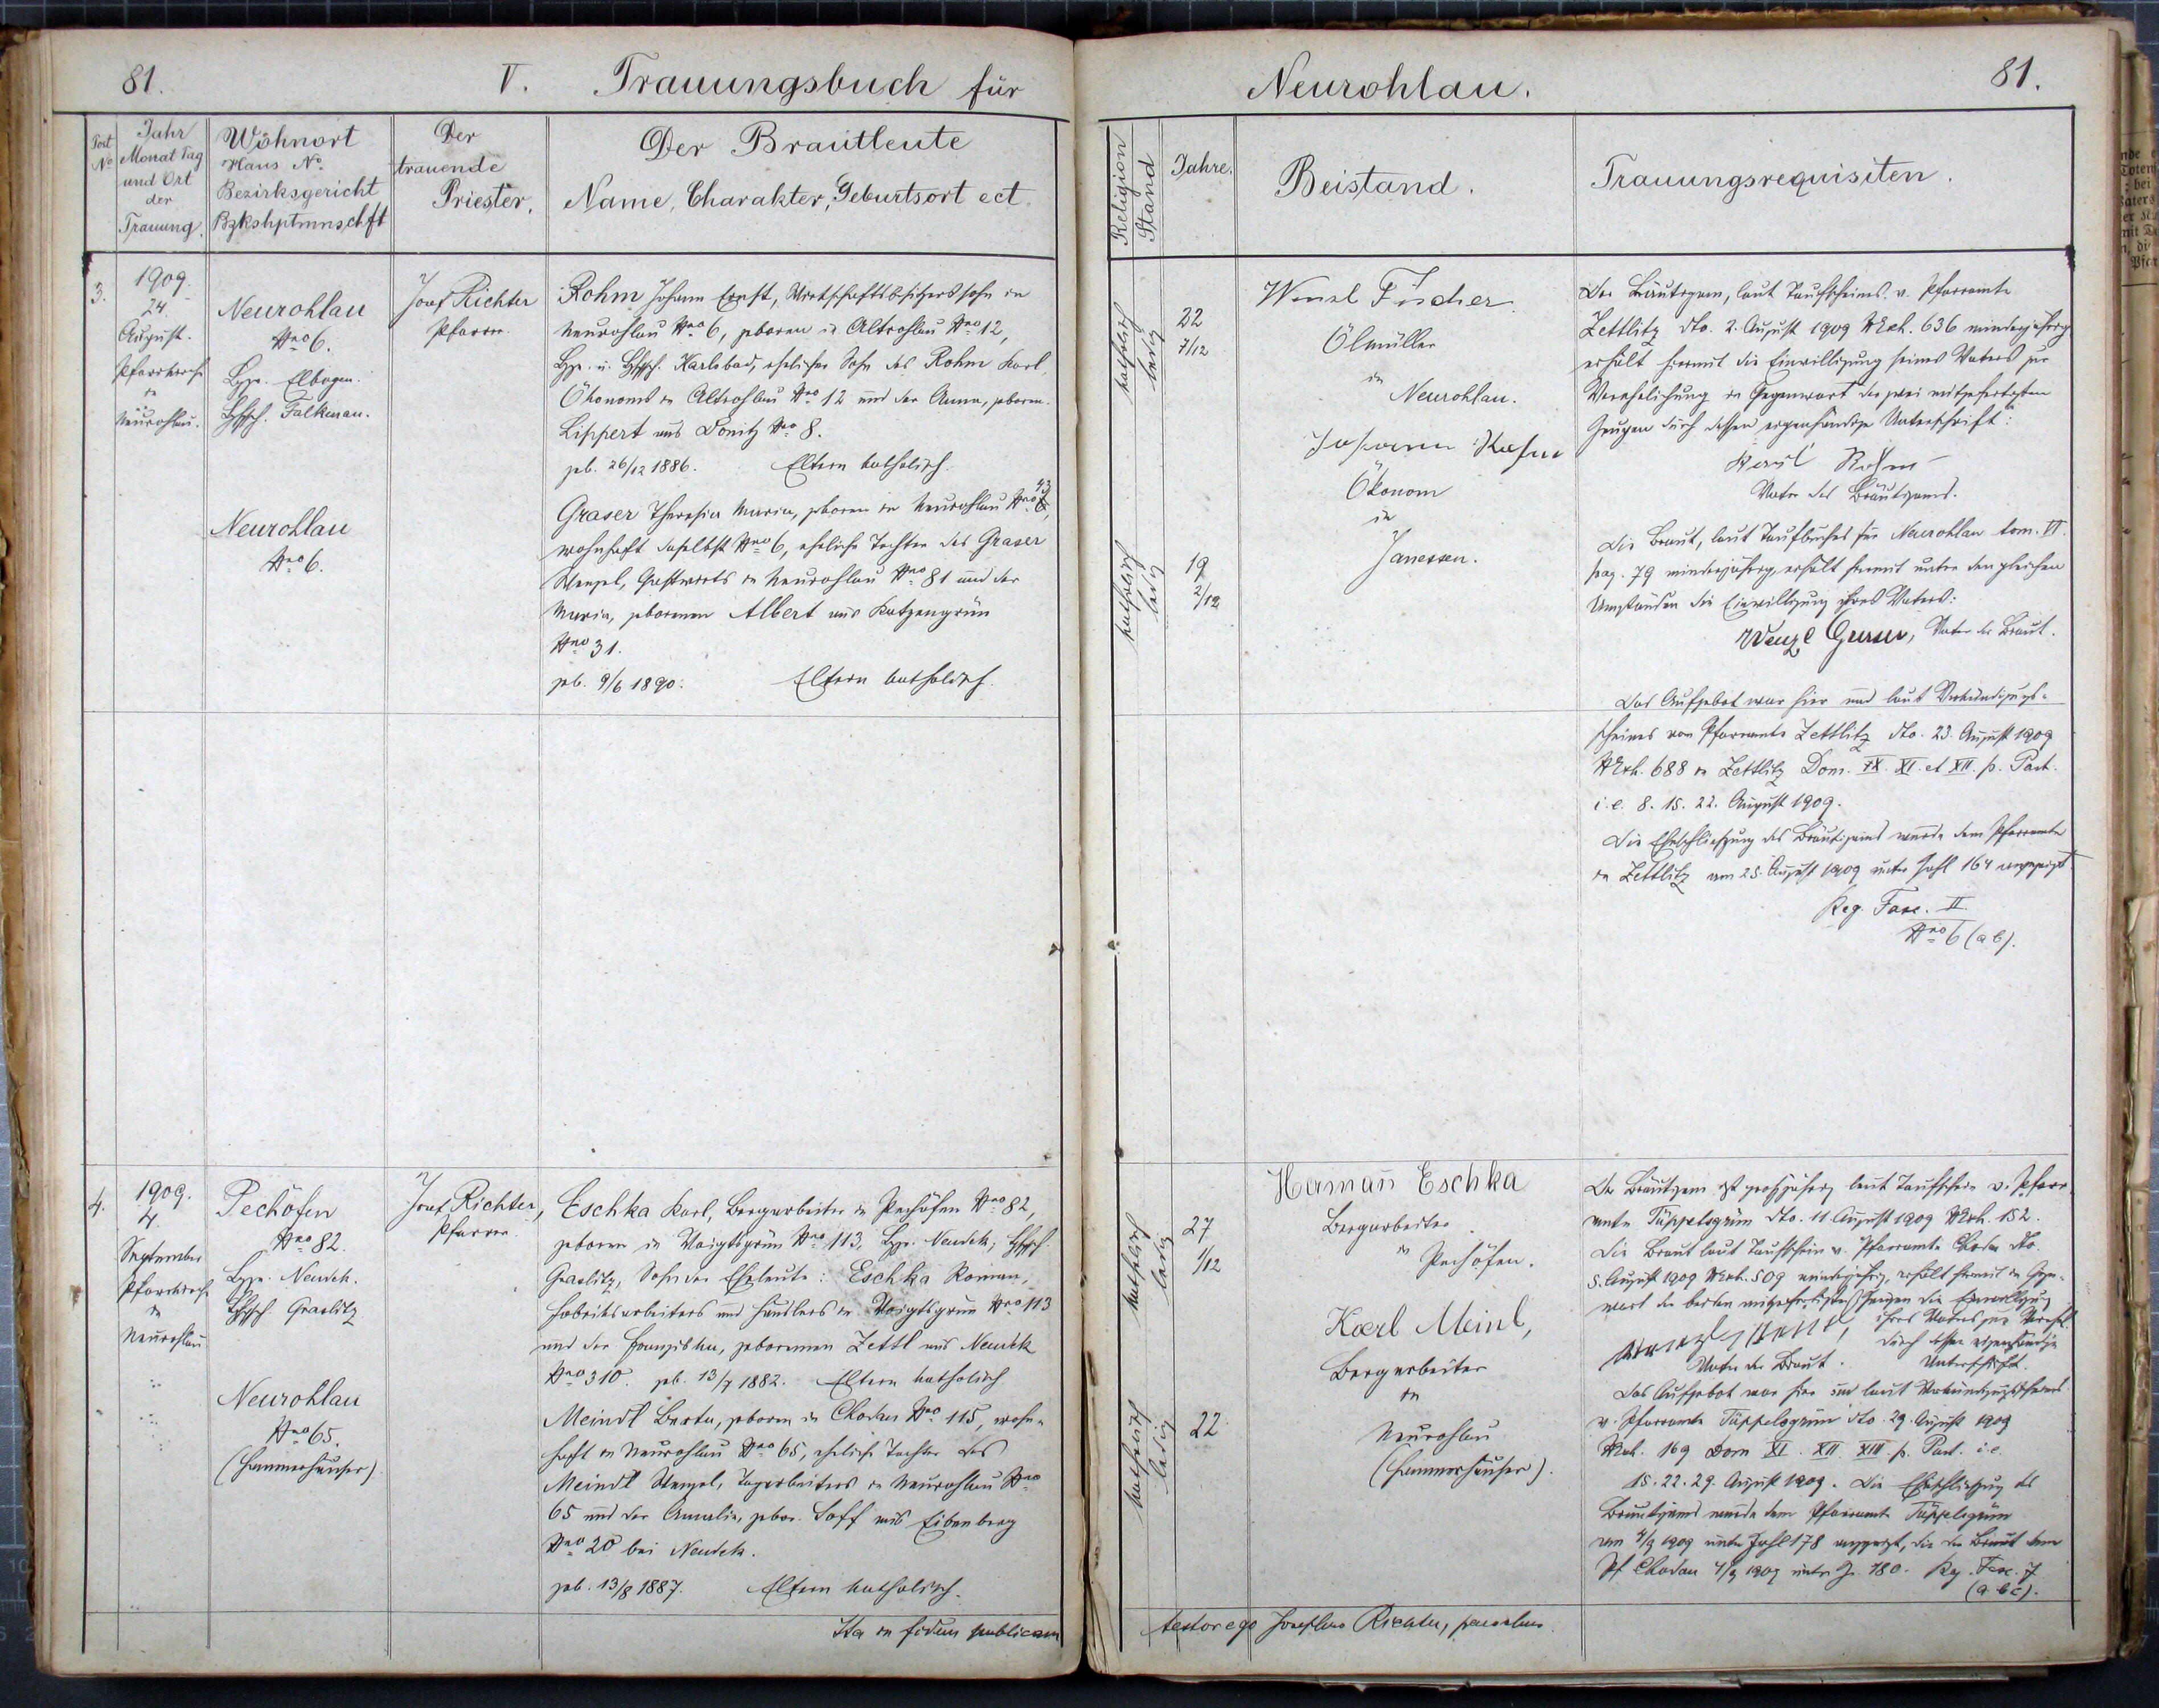 81.
V. Trauungsbuch für
Neurohlau.
81.
Post No
Jahr
Monat Tag
und Ort
der
Trauung.
Wohnort
Haus No.
Bezirksgericht
Bzkshptmnschft
Der
trauende
Priester.
Der Brautleute
Name, Charakter, Geburtsort ect.
Religion
Stand
Jahre.
Beistand.
Trauungsrequisiten.
3.
1909.
24.
August.
Pfarrkirche
in
Neurohlau.
Neurohlau
Nro 6.
Bzg. Elbogen.
Bhpsch. Falkenau.
Neurohlau
Nro 6.
Josef Richter
Pfarrer.
Rohm Johann Ernst, Wirtschaftsbesitzerssohn in
Neurohlau Nro 6, geboren in Altrohlau Nro 12,
Bzg. u. Bhpsch. Karlsbad, ehelicher Sohn des Rohm Karl
Ökonoms in Altrohlau Nro 12 und der Anna, geboren.
Lippert aus Donitz Nro 8.
geb. 26/12 1886. Eltern katholisch.
Graser Theresia Maria, geboren in Neurohlau Nro 43,
wohnhaft daselbst Nro 6, eheliche Tochter des Graser
Wenzel, Gastwirts in Neurohlau Nro 81 und der
Maria, geborenen Albert aus Katzengrün
Nro 31.
geb. 9/6 1890. Eltern katholisch.
katholisch
ledig
22
7/12
katholisch
ledig
19
2/12
Wenzl Fischer
Ölmüller
in
Neurohlau.
Johann
Ökonom
in
Janessen.
Der Bräutigam, laut Taufscheines v. Pfarramte
Zettlitz dto. 2. August 1909 NExh. 636 minderjährig
erhält hiermit die Einwilligung seines Vaters zur
Verehelichung in Gegenwart der zwei mitgefertigten
Zeugen durch dessen eigenhändige Unterschrift:
Karl Rohm
Vater des Bräutigams.
Die Braut, laut Taufbuches für Neurohlau tom. VI.
pag. 79 minderjährig, erhält hiermit unter den gleichen
Umständen die Einwilligung ihres Vaters:
Wenzl Graser, Vater der Braut.
Das Aufgebot war hier und laut Verkündigungs-
scheines vom Pfarramte Zettlitz dto. 23. August 1909
NExh. 688 in Zettlitz Dom. IX. XI. et XII. p. Pent.
i.e. 8. 15. 22. August 1909.
Die Eheschließung des Bräutigams wurde dem Pfarramte
in Zettlitz am 25. August 1909 unter Zahl 164 angezeigt.
Reg. Fasc. II.
Nro 6 (ab).
4.
1909.
4.
September
Pfarrkirche
in
Neurohlau
Pechöfen
Nro 82.
Bzg. Neudek.
Bhpsch. Graslitz
Neurohlau
Nro 65.
(Hammerhäuser).
Josef Richter,
Pfarrer.
Eschka Karl, Bergarbeiter in Pechöfen Nro 82,
geboren in Voigtsgrün Nro 113, Bzg. Neudek, Bhpsch.
Graslitz, Sohn der Eheleute: Eschka Roman,
Fabriksarbeiters und Häuslers in Voigtsgrün Nro 113
und der Franziska, geborenen Zettl aus Neudek
Nro 310. geb. 13/7 1882. Eltern katholisch
Meindl Berta, geboren in Chodau Nro 115, wohn-
haft in Neurohlau Nro 65, eheliche Tochter des
Meindl Wenzel, Tagarbeiters in Neurohlau Nro
65 und der Amalia, gebor. aus Eibenberg
Nro 20 bei Neudek.
geb. 13/8 1887. Eltern katholisch.
katholisch
ledig
27
1/12
katholisch
ledig
22
Hermann Eschka
Bergarbeiter
in Pechöfen.
Karl Meinl,
Bergarbeiter
in
Neurohlau
(Hammerhäuser).
Der Bräutigam ist großjährig laut Taufschein v. Pfarr-
amte Tüppelsgrün dto. 11. August 1909 NExh. 152.
Die Braut laut Taufschein v. Pfarramte Chodau dto.
5. August 1909 NExh. 509 minderjährig, erhält hiermit in Gegen-
wart der beiden mitgefertigten Zeugen die Einwilligung
ihres Vaters zur Verehel.
durch dessen eigenhändige
Vater der Braut. Unterschrift.
Das Aufgebot war hier und laut Verkündigungsscheines
v. Pfarramte Tüppelsgrün dto. 29. August 1909
NExh. 169 Dom XI. XII. XIII p. Pent. i.e.
15. 22. 29. August 1909. Die Eheschließung des
Bräutigams wurde dem Pfarramte Tüppelsgrün
am 4/9 1909 unter Zahl 178 angezeigt, die der Braut dem
Pf Chodau 4/9 1909 unter Z. 180. Reg. Fasc. 7
(abc).
Ita in fidem publicam
testor ego Josephus Richter, parochus.